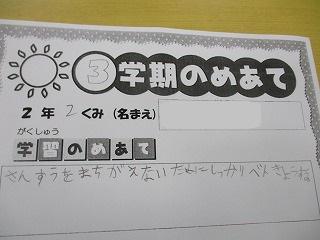 3学期のめあて
2年 2くみ (名まえ)
がくしゅう
学習のめあて
さんすうをまちがえないためにしっかりべんきょうする